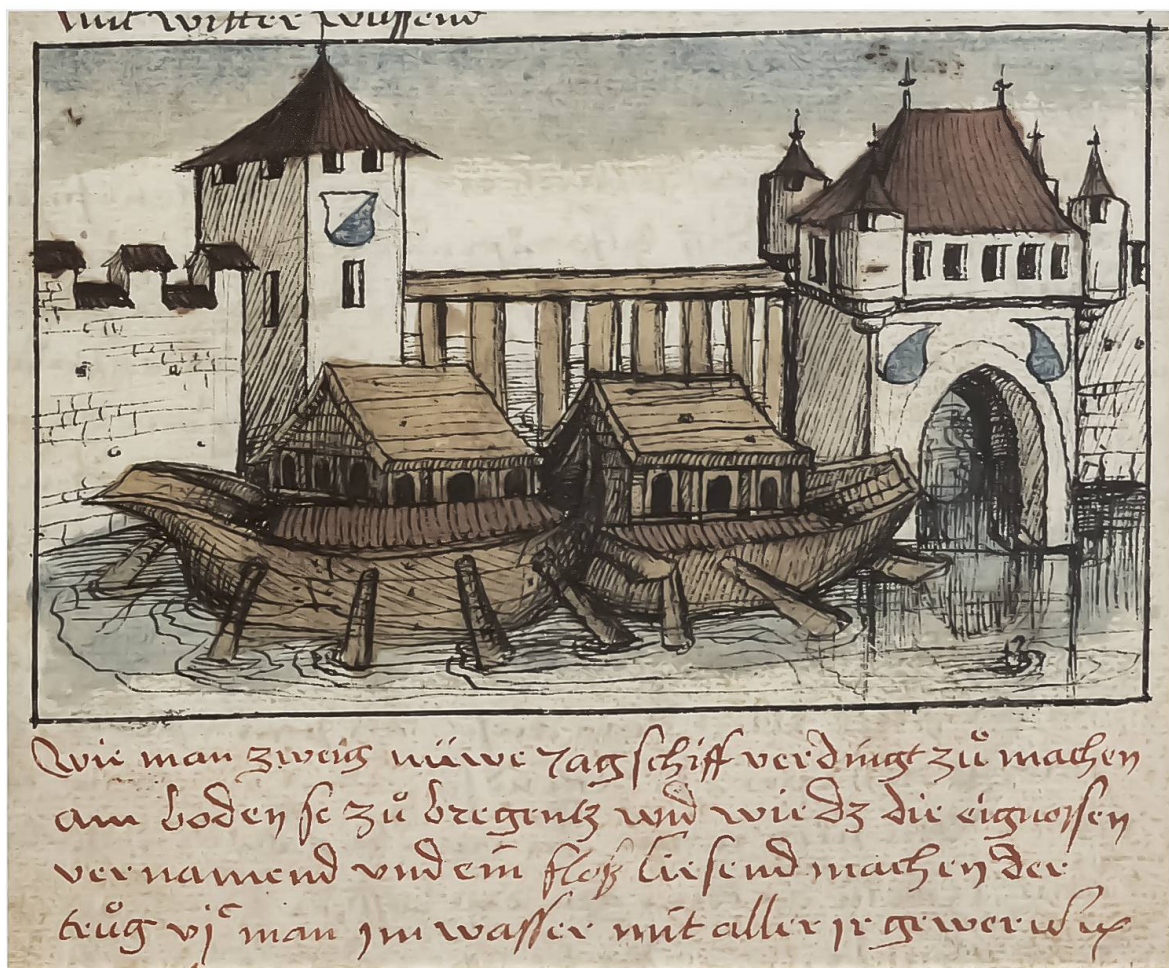 mit witter wüssend
Wie man zweig nüwe Jagschiff verdingt zů machen
am boden se zů bregentz und wie dz die eignossen
vernamend und ein floß liesend machen der
trůg vjᶜ man jm wasser mit aller jr gewer